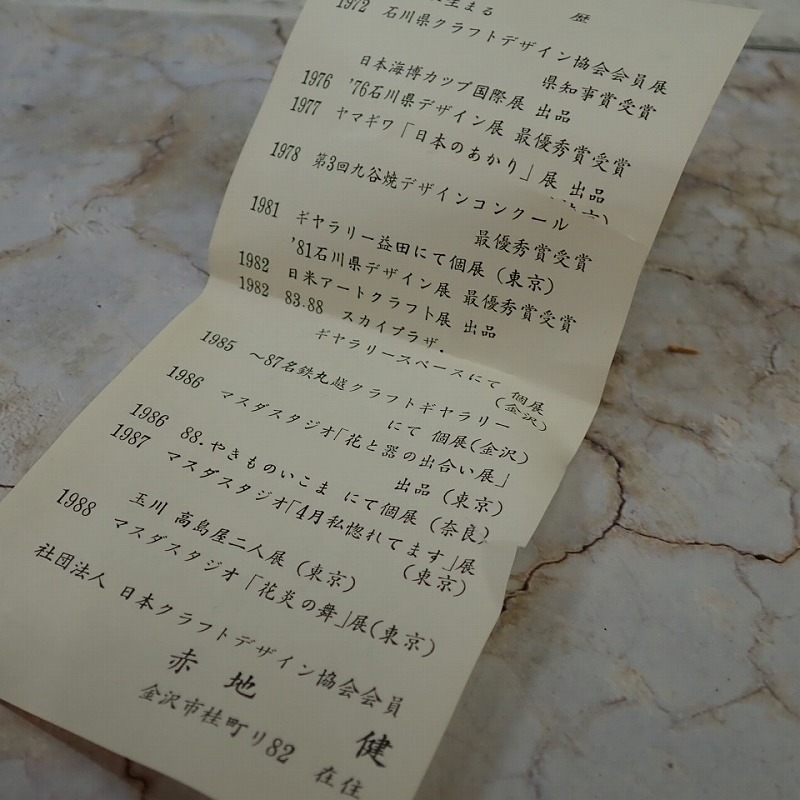 歴
生まる
1972 石川県クラフトデザイン協会会員展
県知事賞受賞
日本海博カップ国際展 出品
1976 '76石川県デザイン展 最優秀賞受賞
1977 ヤマギワ「日本のあかり」展 出品
1978 第3回九谷焼デザインコンクール
最優秀賞受賞
1981 ギャラリー益田にて個展(東京)
'81石川県デザイン展 最優秀賞受賞
1982 日米アートクラフト展 出品
1982 83.88 スカイプラザ・
ギャラリースペースにて 個展(金沢)
1985 〜87名鉄丸越クラフトギャラリー
にて 個展(金沢)
1986 マスダスタジオ「花と器の出合い展」
出品(東京)
1986 88.やきものいこま にて個展(奈良)
1987 マスダスタジオ「4月私惚れてます」展
(東京)
1988 玉川 高島屋二人展(東京)
マスダスタジオ「花炎の舞」展(東京)
社団法人 日本クラフトデザイン協会会員
赤地 健
金沢市桂町リ82 在住